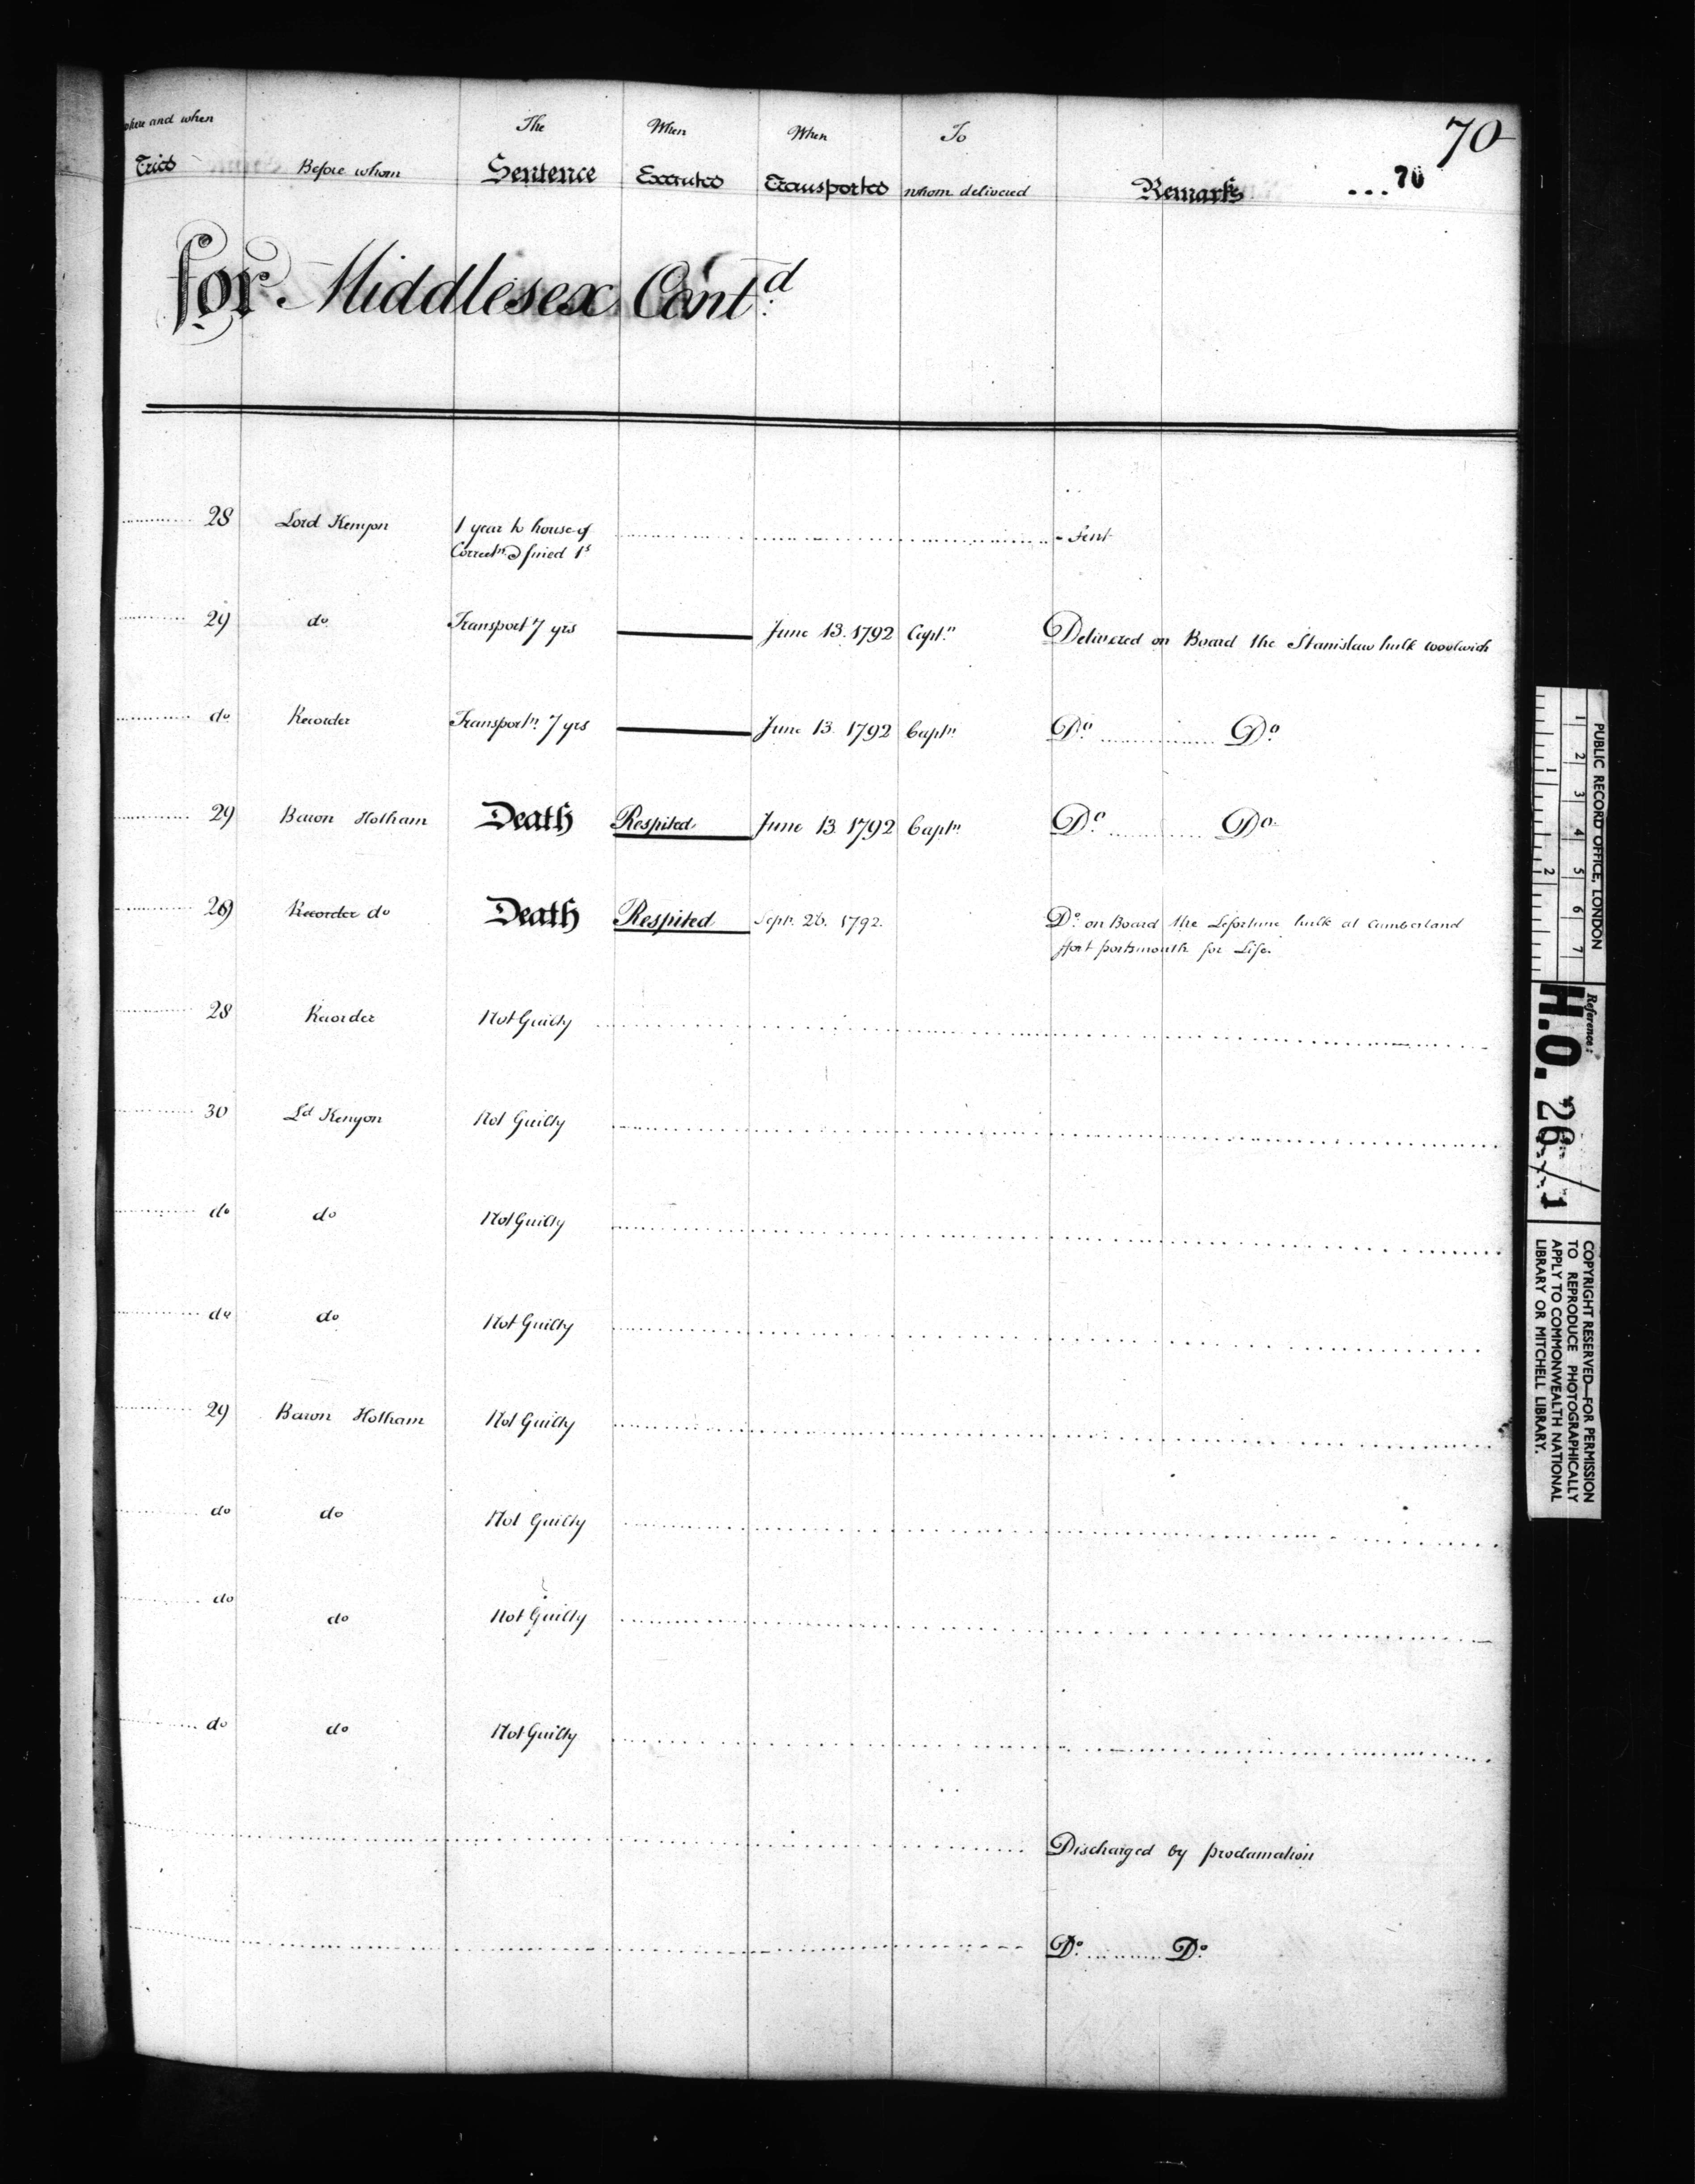 70
where and when The When When To
Tried Before whom Sentence Executed Transported whom delivered Remarks ...70
for Middlesex Contd.
28 Lord Kenyon 1 year to house of - Sent
Correctn. & fined 1s
29 do Transport 7 yrs June 13. 1792 Captn. Delivered on Board the Stanislaw hulk woolwich
do Recorder Transportn. 7 yrs June 13. 1792 Captn. Do Do
29 Baron Hotham Death Respited June 13 1792 Captn. Do. Do
Recorder do Death Respited Sept. 26. 1792. Do. on Board the Lefortune hulk at Cumberland
fort portsmouth for Life.
28 Recorder Not Guilty
30 Ld Kenyon Not Guilty
do do Not Guilty
do do Not Guilty
29 Baron Hotham Not Guilty
do do Not Guilty
do do Not Guilty
do do Not Guilty
Discharged by proclamation
Do. Do.
PUBLIC RECORD OFFICE, LONDON
1 2 3 4 5 6 7
1 2
Reference:
H.O. 26/1
COPYRIGHT RESERVED—FOR PERMISSION
TO REPRODUCE PHOTOGRAPHICALLY
APPLY TO COMMONWEALTH NATIONAL
LIBRARY OR MITCHELL LIBRARY.